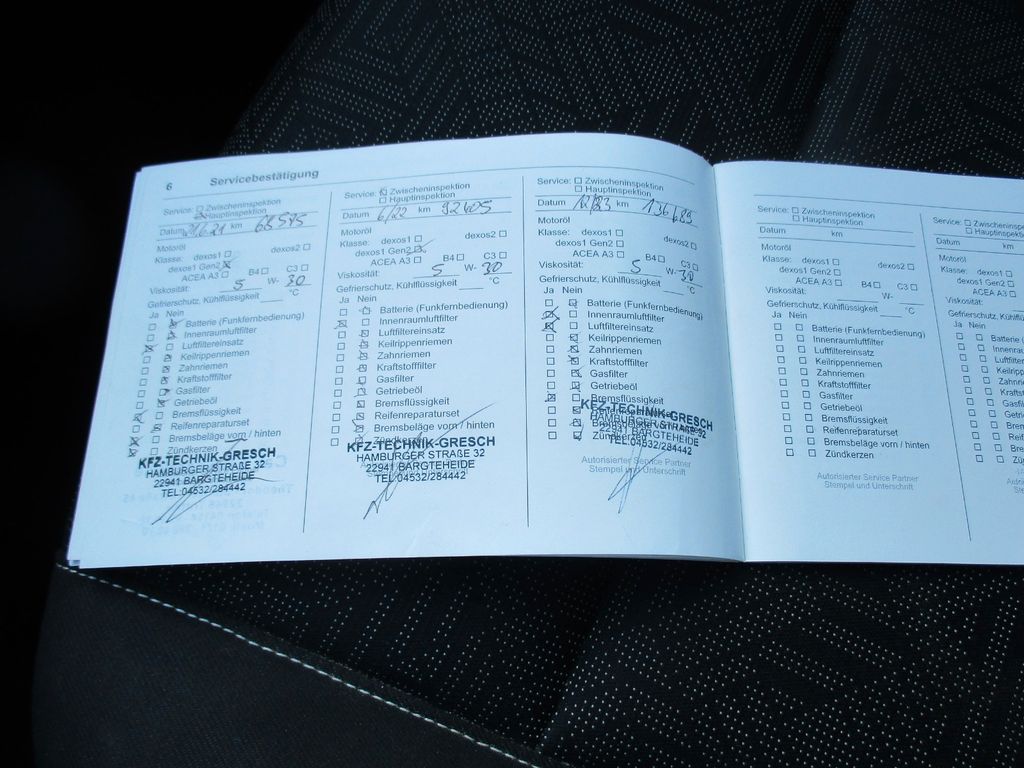 6 Servicebestätigung
Service: Zwischeninspektion
Hauptinspektion
Datum 21.6.21 km 68575
Motoröl
Klasse: dexos1 dexos2
dexos1 Gen2
ACEA A3 B4 C3
Viskosität: 5 W- 30
Gefrierschutz, Kühlflüssigkeit °C
Ja Nein
Batterie (Funkfernbedienung)
Innenraumluftfilter
Luftfiltereinsatz
Keilrippenriemen
Zahnriemen
Kraftstofffilter
Gasfilter
Getriebeöl
Bremsflüssigkeit
Reifenreparaturset
Bremsbeläge vorn / hinten
Zündkerzen
KFZ-TECHNIK-GRESCH
HAMBURGER STRAßE 32
22941 BARGTEHEIDE
TEL.04532/284442
Service: Zwischeninspektion
Hauptinspektion
Datum 6/22 km 92605
Motoröl
Klasse: dexos1 dexos2
dexos1 Gen2
ACEA A3 B4 C3
Viskosität: 5 W- 30
Gefrierschutz, Kühlflüssigkeit °C
Ja Nein
Batterie (Funkfernbedienung)
Innenraumluftfilter
Luftfiltereinsatz
Keilrippenriemen
Zahnriemen
Kraftstofffilter
Gasfilter
Getriebeöl
Bremsflüssigkeit
Reifenreparaturset
Bremsbeläge vorn / hinten
Zündkerzen
KFZ-TECHNIK-GRESCH
HAMBURGER STRAßE 32
22941 BARGTEHEIDE
TEL.04532/284442
Service: Zwischeninspektion
Hauptinspektion
Datum 12/23 km 136689
Motoröl
Klasse: dexos1 dexos2
dexos1 Gen2
ACEA A3 B4 C3
Viskosität: 5 W- 30
Gefrierschutz, Kühlflüssigkeit °C
Ja Nein
Batterie (Funkfernbedienung)
Innenraumluftfilter
Luftfiltereinsatz
Keilrippenriemen
Zahnriemen
Kraftstofffilter
Gasfilter
Getriebeöl
Bremsflüssigkeit
Reifenreparaturset
Bremsbeläge vorn / hinten
Zündkerzen
KFZ-TECHNIK-GRESCH
HAMBURGER STRAßE 32
22941 BARGTEHEIDE
TEL.04532/284442
Autorisierter Service Partner
Stempel und Unterschrift
Service: Zwischeninspektion
Hauptinspektion
Datum km
Motoröl
Klasse: dexos1 dexos2
dexos1 Gen2
ACEA A3 B4 C3
Viskosität: W-
Gefrierschutz, Kühlflüssigkeit °C
Ja Nein
Batterie (Funkfernbedienung)
Innenraumluftfilter
Luftfiltereinsatz
Keilrippenriemen
Zahnriemen
Kraftstofffilter
Gasfilter
Getriebeöl
Bremsflüssigkeit
Reifenreparaturset
Bremsbeläge vorn / hinten
Zündkerzen
Autorisierter Service Partner
Stempel und Unterschrift
Service: Zwischeninspe
Hauptinspektio
Datum km
Motoröl
Klasse: dexos1
dexos1 Gen2
ACEA A3
Viskosität:
Gefrierschutz, Kühlflüs
Ja Nein
Batterie (
Innenrau
Luftfilter
Keilripp
Zahnrie
Kraftsto
Gasfil
Getrie
Brem
Reife
Brem
Zün
Autoris
Stem